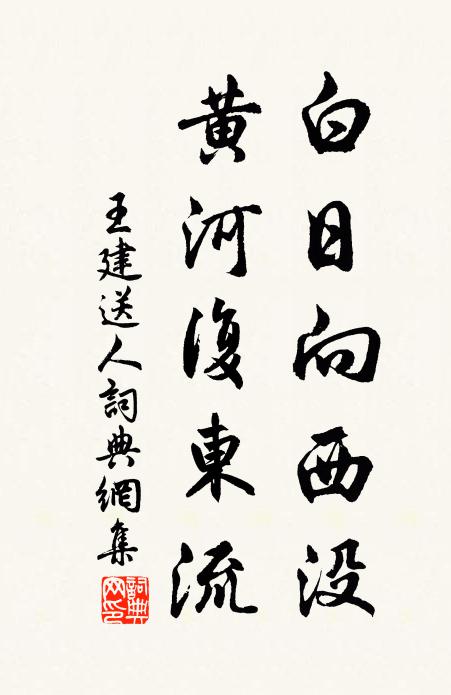 白日向西没
黄河復東流
王建送人詞典網集
詞典網印